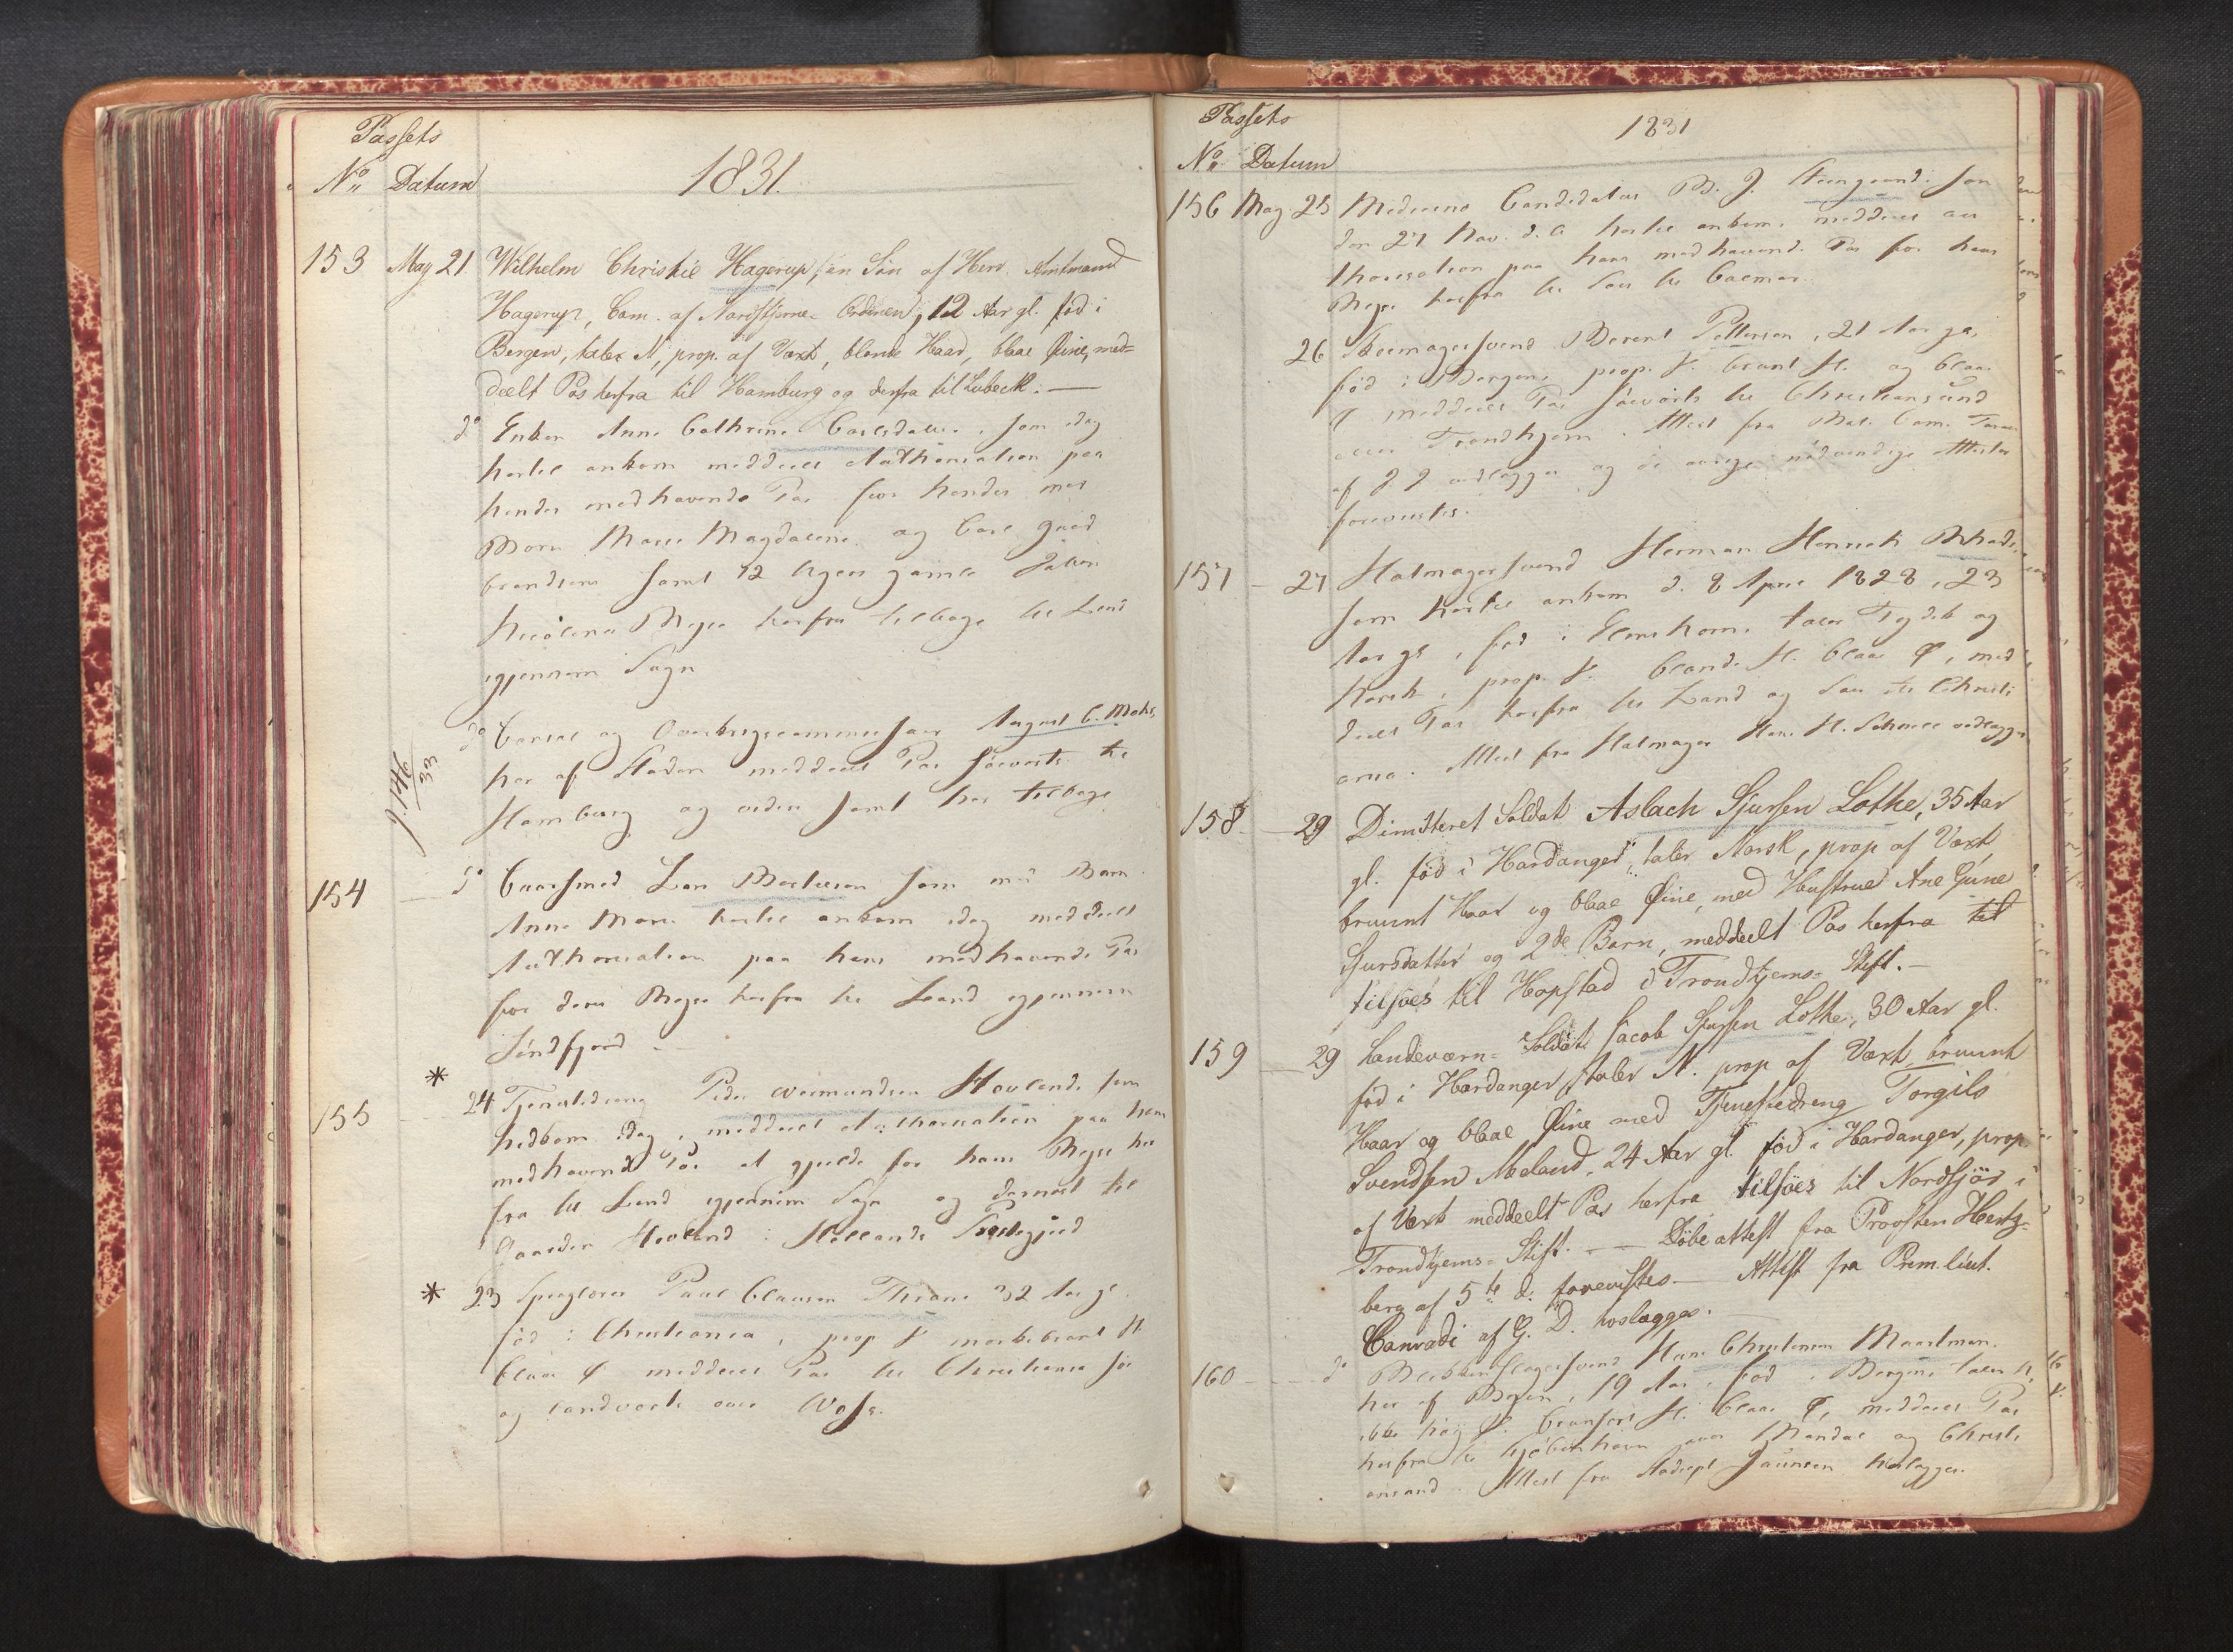 Passets
No Datum
1831.
153 May 21. Wilhelm Christie Hagerup, en Søn af Herr Amtmand
Hagerup, Com. af Nordstjerne-Ordenen, 12 Aar gl. fød i
Bergen, taler N, prop. af Væxt, blonde Haar, blaae Øine, med=
deelt Pas herfra til Hamburg og derfra til Lubeck. —
do Enken Anne Cathrine som idag
hertil ankom meddeelt Authorisation paa
hendes medhavende Pas for hendes med
Børn Maren Magdalene og Carl
samt 12 Uger gamle
Nicoline Reyse herfra tilbage til Land
igjennem Sogn
do Consul og Overkrigscommissair August C. Mohr,
her af Staden meddeelt Pas søeverts til
Hamburg og videre samt her tilbage
J. 146/33
154 — do Lars som med Barn
Anne Marie hertil ankom idag meddeelt
Authorisation paa hans medhavende Pas
for deres Reyse herfra til Land igjennem
Søndfjord —
*
155 24 Tjenestedreng Peder Hovland, som
hidkom idag, meddeelt Authorisation paa ham
medhavende Pas at gjelde for hans Reyse her
fra til Land igjennem Sogn og dernæst til
Gaarden Hovland i Præstegjeld
* 23 Paul Clausen Thrane 32 Aar gl.
fød i Christiania, prop. V mørkebrunt H.
blaa Ø meddeelt Pas til Christiania sø
og landverts over Voss.
Passets
No Datum
1831
156 May 25 Medicine Candidatus B. J. som
den 27 Nov. d. A. hertil ankom, meddeelt au
thorisation paa hans medhavende Pas for hans
Reyse herfra til Søes til
26 Skomagersvend Berent Pettersen, 21 Aar gl.
fød i Bergen, prop. V. brunt H. og blaa
Ø meddeelt Pas søeverts til Christiansund
eller Trondhjem. Attest fra
af vedlægges og de øvrige nødvendige Attester
forevistes.
157 — 27 Hatmagersvend Herman Henrich
som hertil ankom d. 8 April 1828, 23
Aar gl, fød i Elmshorn, taler Tydsk og
Norsk, prop. V. blonde H. blaae Ø, med
deelt Pas herfra til Land og Søe til Christi
ania. Attest fra Hatmager vedlægges
158. — 29 Dimitteret Soldat Aslach Sjursen Lothe, 35 Aar
gl. fød i Hardanger, taler Norsk, prop af Væxt,
bruunt Haar og blaae Øine, med Hustrue Ane
Sjursdatter og 2de Børn, meddeelt Pas herfra til
tilsøes til Hopstad i Trondhjems-Stift. —
159 — 29 Landeværn-Soldat Jacob Sjursen Lothe, 30 Aar gl.
fød i Hardanger, taler N. prop af Væxt, bruunt
Haar og blaae Øine med Tjenestedreng Torgils
Svendsen Mæland, 24 Aar gl. fød i Hardanger, prop.
af Væxt meddeelt Pas herfra tilsøes til Nordfjør i
Trondhjems-Stift. — Døbeattest fra Provsten Hertz-
berg af 5te d. forevistes. — Attest fra Prem. lieut.
Conradi af G. D. hoslægges.
160 — do Blikkenslagersvend Hans Christensen Maartman
her af Byen, 19 Aar, fød i Bergen, taler N,
ikke høj V. H. blaae Ø, meddeelt Pas
herfra til Kjøbenhavn over Mandal og Christi
ansand. Attest fra hoslægges.